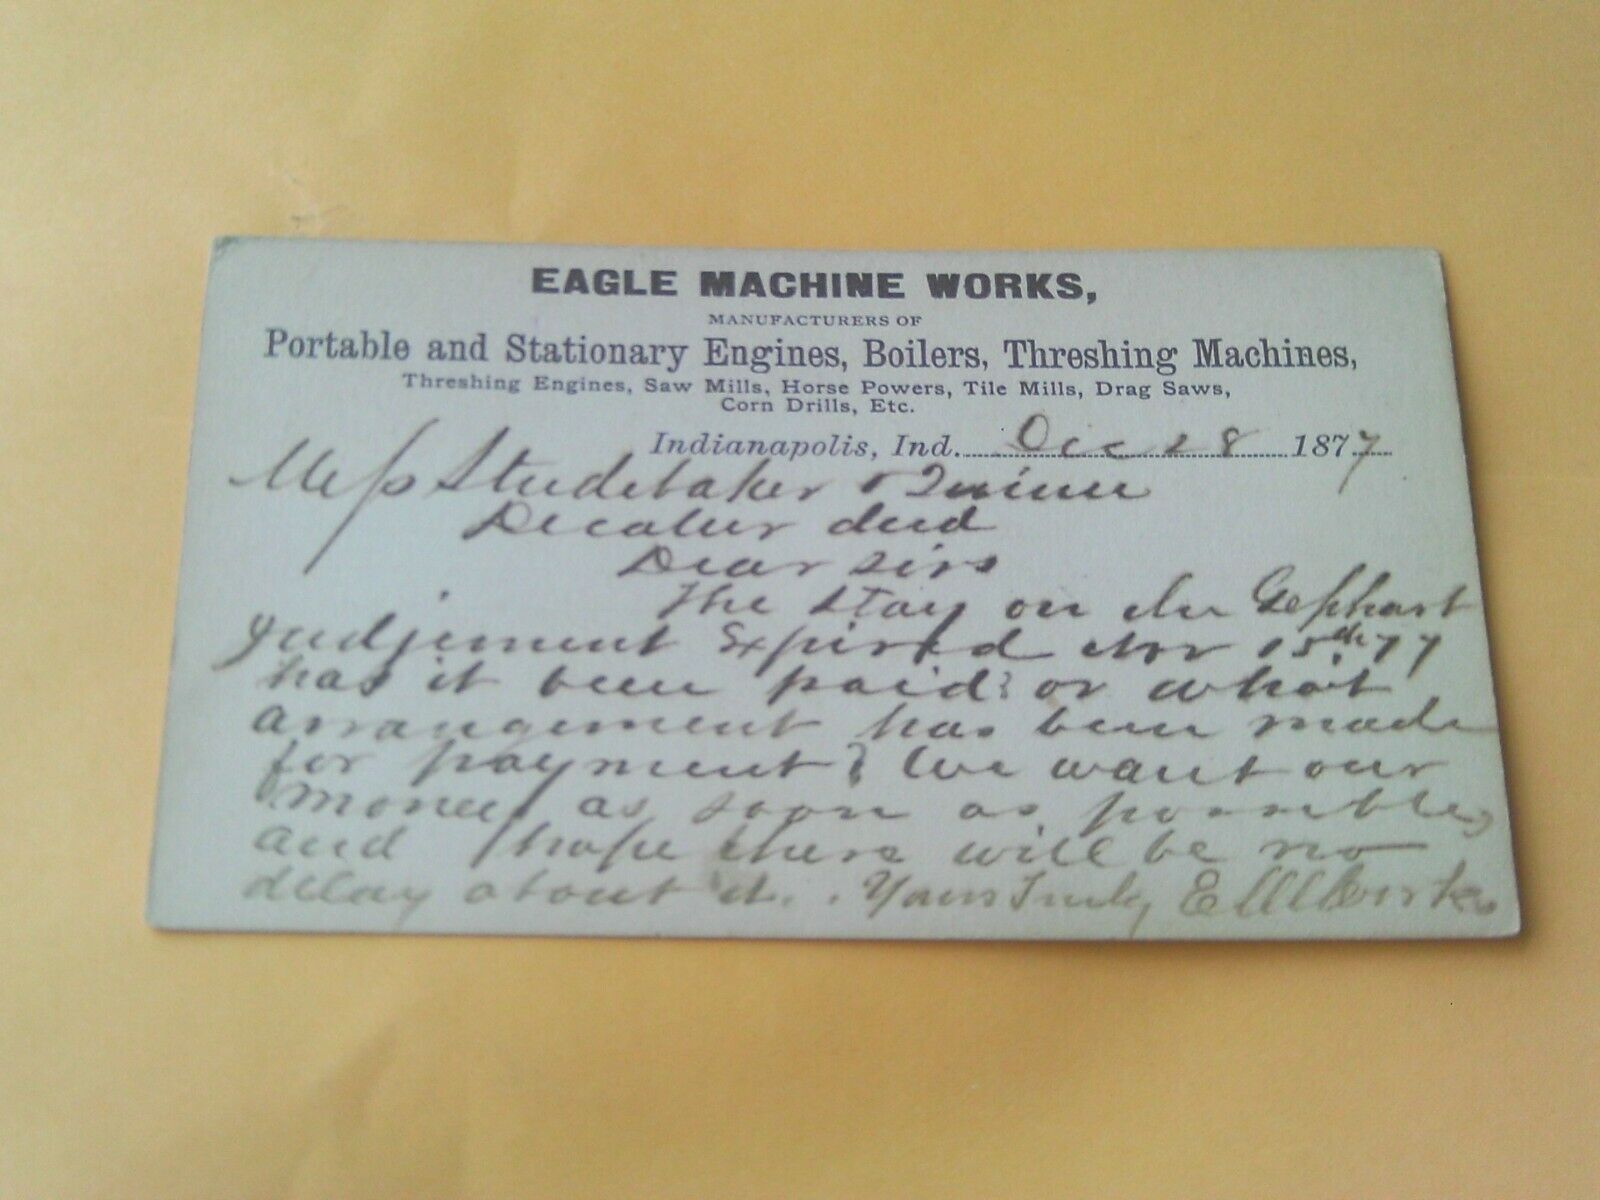 EAGLE MACHINE WORKS,
MANUFACTURERS OF
Portable and Stationary Engines, Boilers, Threshing Machines,
Threshing Engines, Saw Mills, Horse Powers, Tile Mills, Drag Saws,
Corn Drills, Etc.
Indianapolis, Ind. Dec 28 1877
Studebaker & Quinn
Decatur Ind
Dear Sirs
The Stay on the Gephart
judjement Expired Nov 15th 77
has it been paid? or what
arrangement has been made
for payment? We want our
money as soon as possible,
and hope there will be no
delay about it. Yours Truly, E M Works